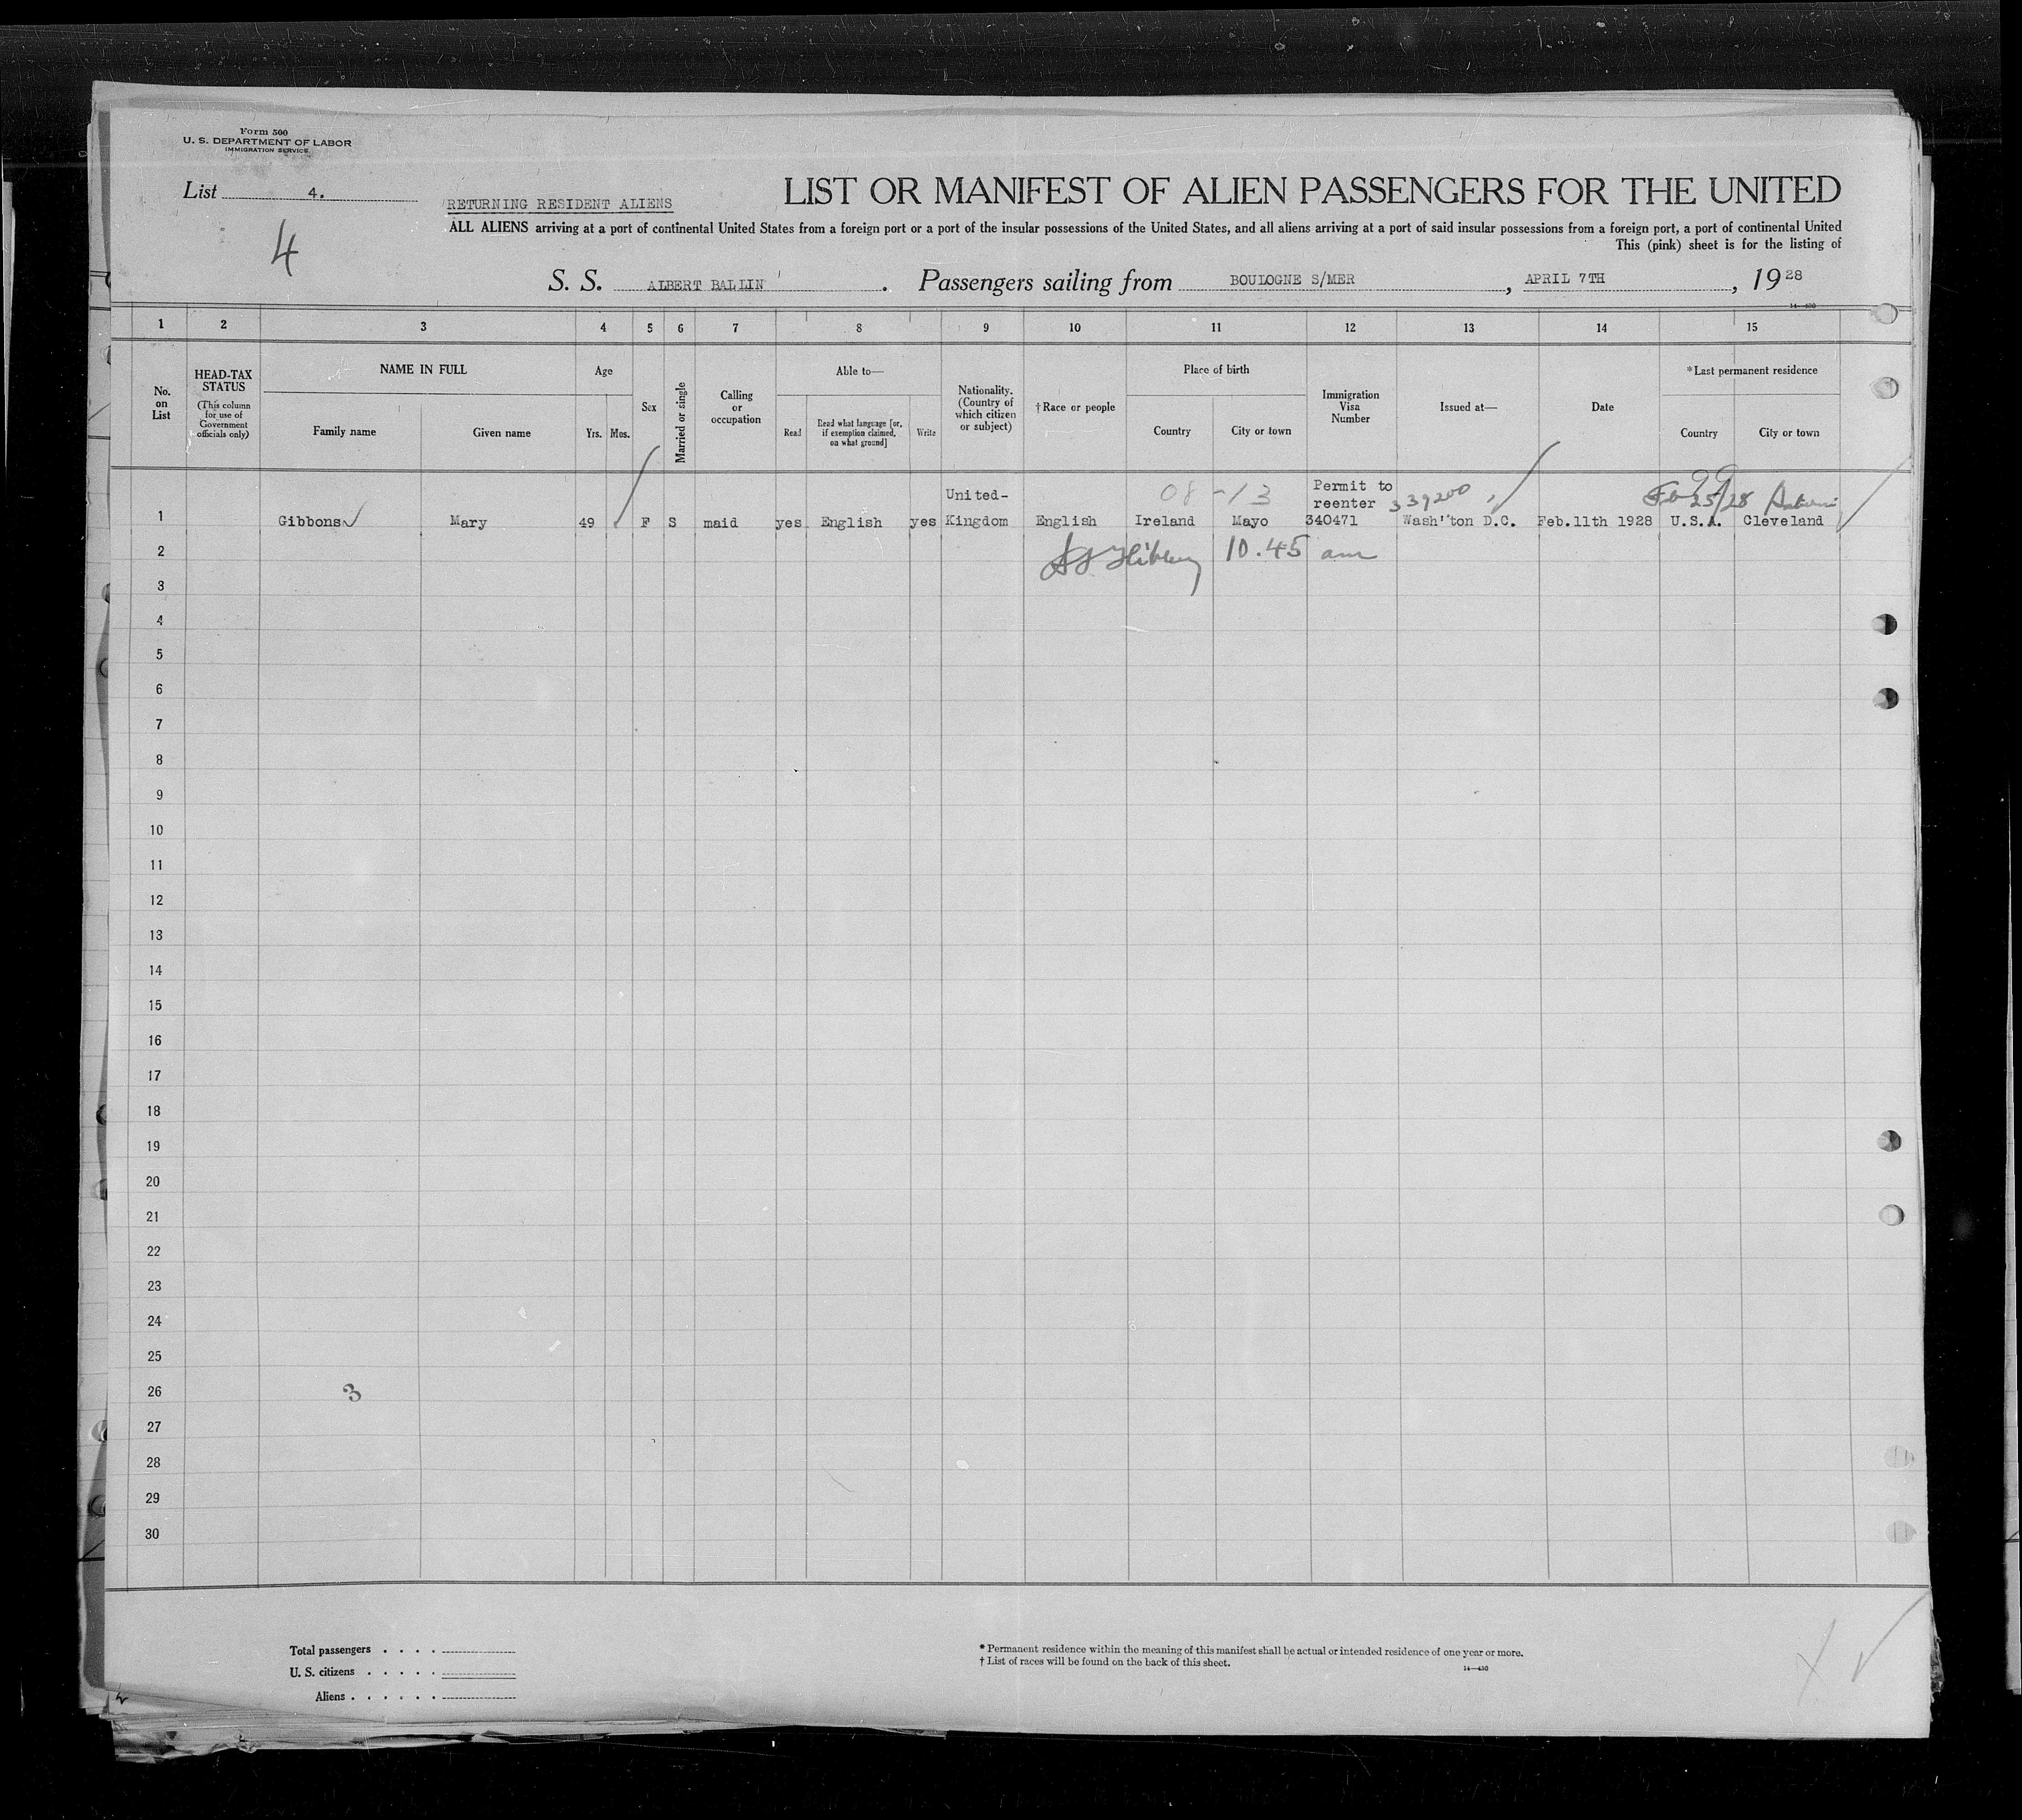 Form 500
U. S. DEPARTMENT OF LABOR
IMMIGRATION SERVICE
List 4.
4
RETURNING RESIDENT ALIENS
LIST OR MANIFEST OF ALIEN PASSENGERS FOR THE UNITED
ALL ALIENS arriving at a port of continental United States from a foreign port or a port of the insular possessions of the United States, and all aliens arriving at a port of said insular possessions from a foreign port, a port of continental United
This (pink) sheet is for the listing of
S. S. ALBERT BALLIN . Passengers sailing from BOULOGNE S/MER , APRIL 7TH , 1928
14—430
1 2 3 4 5 6 7 8 9 10 11 12 13 14 15
No. on List
HEAD-TAX STATUS (This column for use of Government officials only)
NAME IN FULL
Family name Given name
Age
Yrs. Mos.
Sex
Married or single
Calling or occupation
Able to—
Read Read what language [or, if exemption claimed, on what ground] Write
Nationality. (Country of which citizen or subject)
† Race or people
Place of birth
Country City or town
Immigration Visa Number
Issued at—
Date
* Last permanent residence
Country City or town
United- 08 -13 Permit to
reenter 339200 Feb 25/28
1 Gibbons Mary 49 F S maid yes English yes Kingdom English Ireland Mayo 340471 Wash'ton D.C. Feb.11th 1928 U.S.A. Cleveland
2 10.45 am
3
4
5
6
7
8
9
10
11
12
13
14
15
16
17
18
19
20
21
22
23
24
25
26 3
27
28
29
30
Total passengers . . . .
U. S. citizens . . . . .
Aliens . . . . . .
* Permanent residence within the meaning of this manifest shall be actual or intended residence of one year or more.
† List of races will be found on the back of this sheet.
14—430